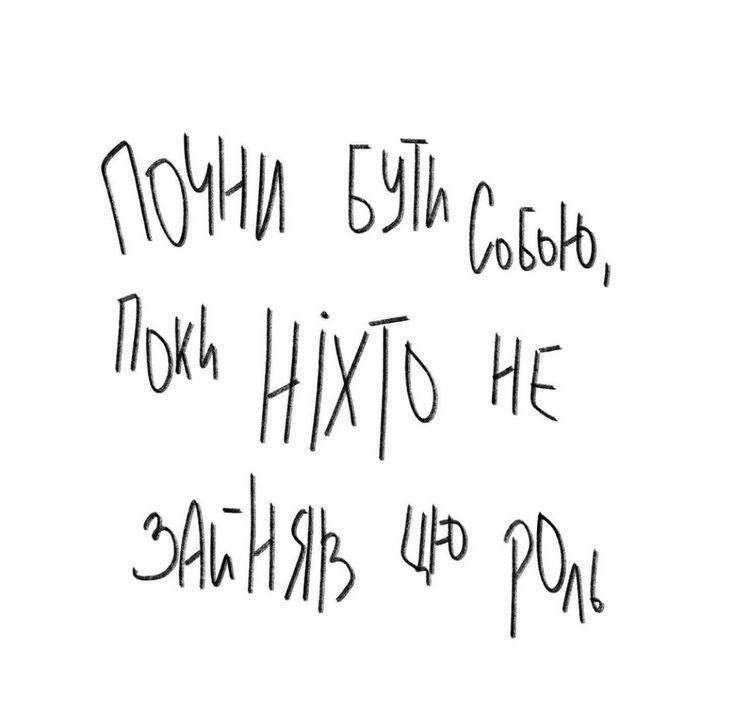 ПОЧНИ БУТИ СОБОЮ,
ПОКИ НІХТО НЕ
ЗАЙНЯВ ЦЮ РОЛЬ